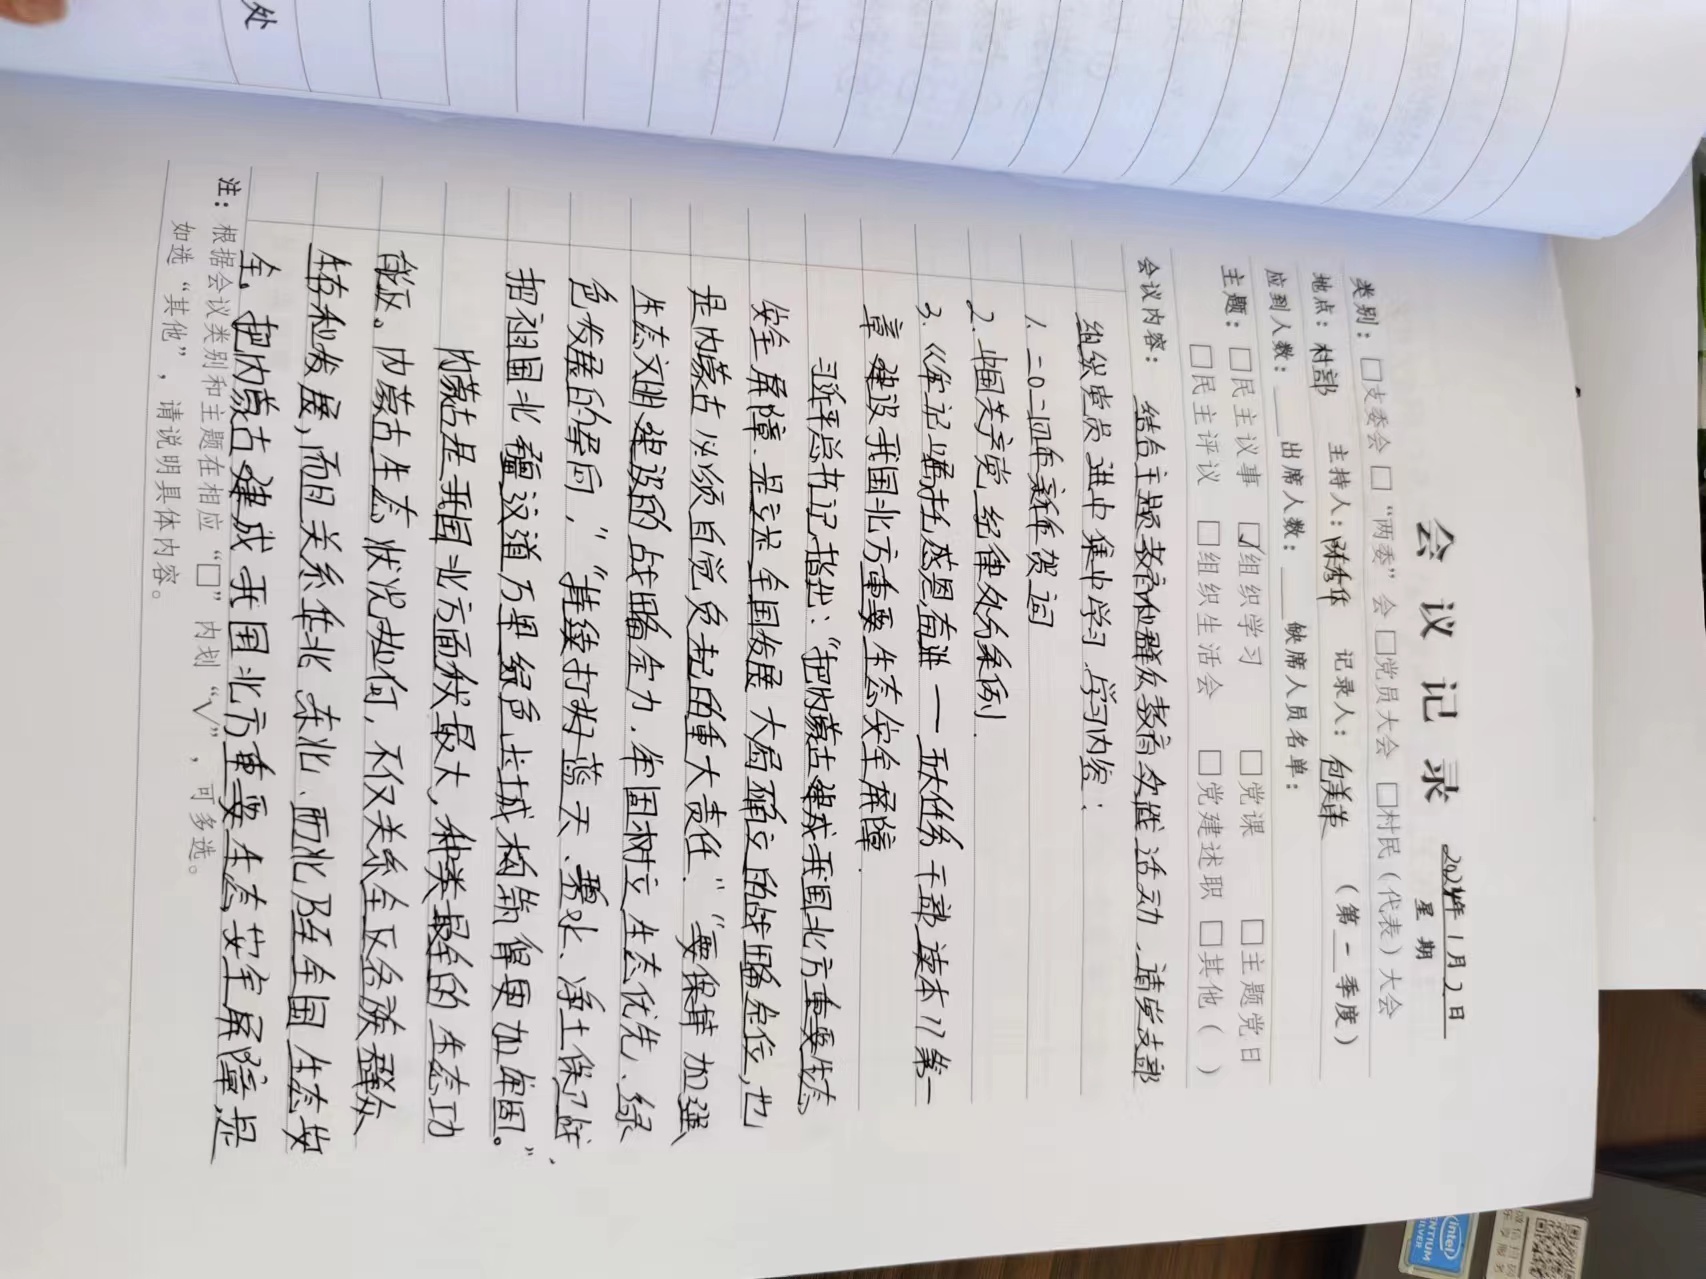 处
会议记录
2024年1月2日
星期
类别：□支委会 □“两委”会 □党员大会 □村民（代表）大会
地点：村部 主持人： 记录人：包美英 （第一季度）
应到人数： 出席人数： 缺席人员名单：
主题：□民主议事 ☑组织学习 □党课 □主题党日
□民主评议 □组织生活会 □党建述职 □其他（ ）
会议内容： 结合主题教育和群众教育实践活动，请党支部
组织党员进中集中学习，学习内容：
1. 二0二四年新年贺词
2. 中国共产党纪律处分条例.
3.《牢记嘱托感恩奋进——五大任务干部读本》第一
章 建设我国北方重要生态安全屏障.
习近平总书记指出：“把内蒙古建成我国北方重要生态
安全屏障、是立足全国发展大局确立的战略定位，也
是内蒙古必须自觉负起的重大责任.”“要保持加强
生态文明建设的战略定力，牢固树立生态优先、绿
色发展的导向，”“持续打好蓝天、碧水、净土保卫战，
把祖国北疆这道万里绿色长城构筑得更加牢固。”
内蒙古是我国北方面积最大，种类最全的生态功
能区。内蒙古生态状况如何，不仅关系全区各族群众
生存和发展，而且关系华北、东北、西北乃至全国生态安
全。把内蒙古建成我国北方重要生态安全屏障，是
注：根据会议类别和主题在相应“□”内划“√”，可多选。
如选“其他”，请说明具体内容。
intel
PENTIUM
SILVER